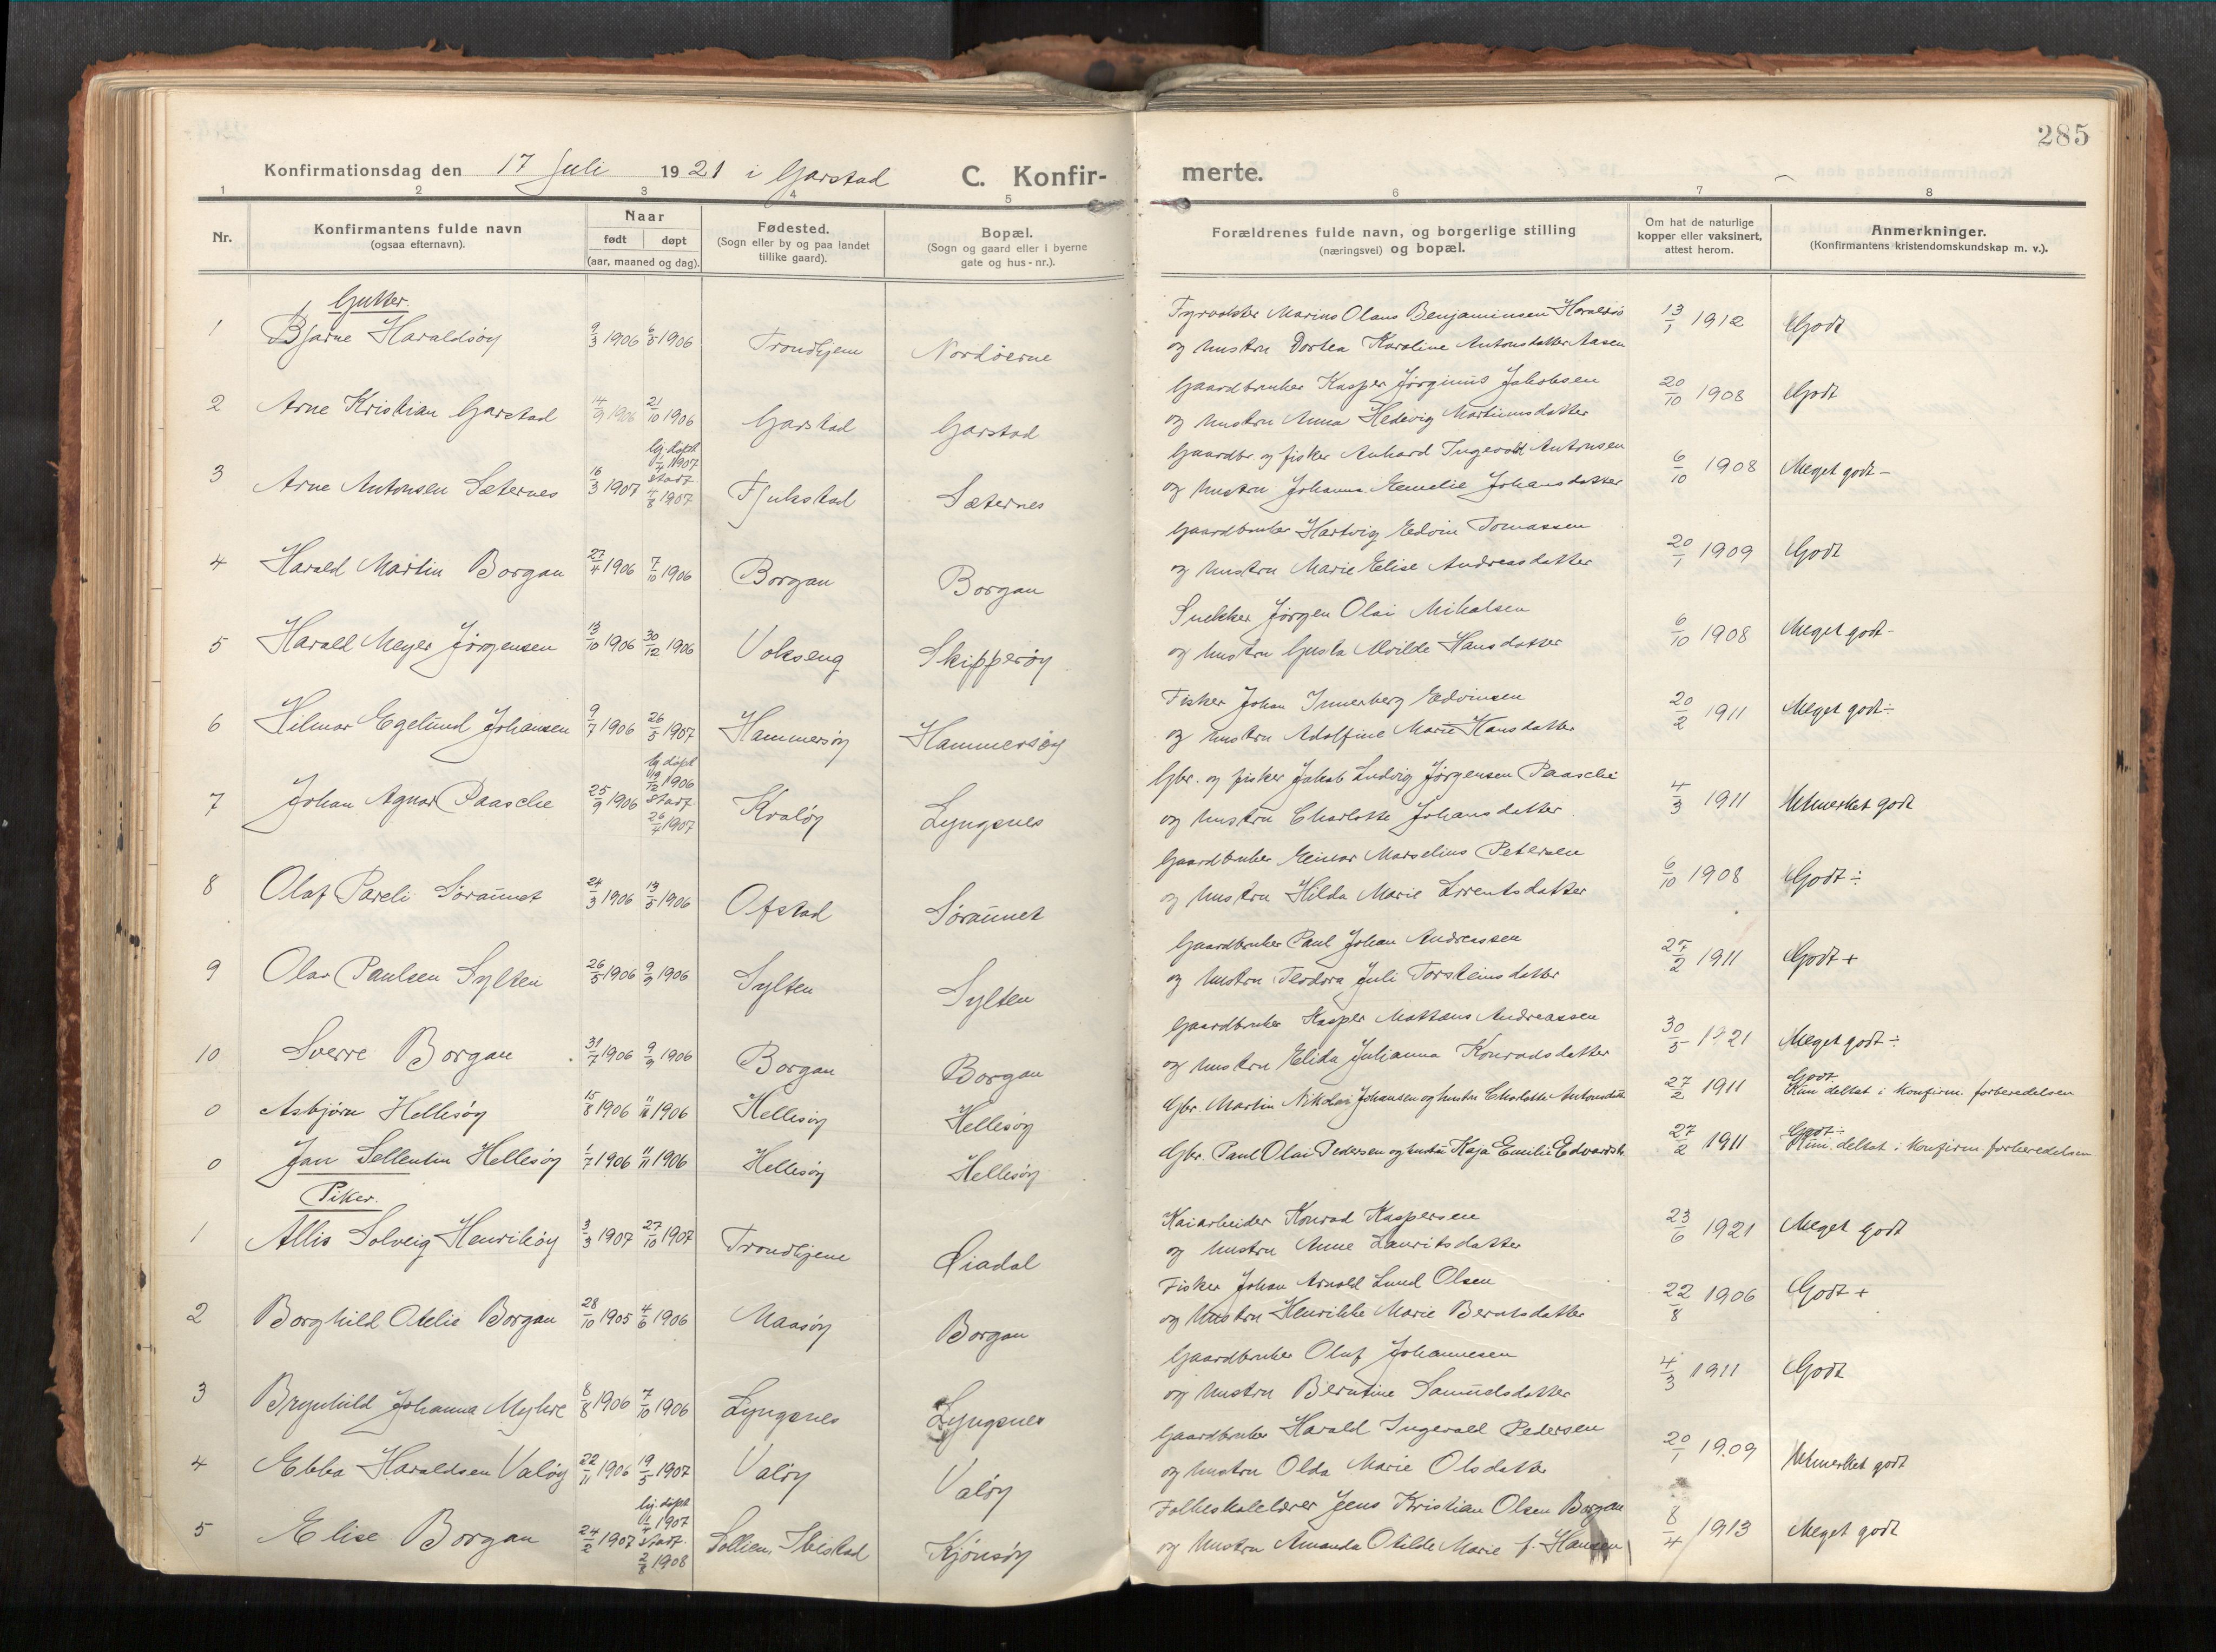 285
Konfirmationsdag den 17 Juli 1921 i Garstad C. Konfir-
merte.
1 2 3 4 5 6 7 8
Nr.
Konfirmantens fulde navn
(ogsaa efternavn).
Naar
født døpt
(aar, maaned og dag).
Fødested.
(Sogn eller by og paa landet
tillike gaard).
Bopæl.
(Sogn og gaard eller i byerne
gate og hus-nr.).
Forældrenes fulde navn, og borgerlige stilling
(næringsvei) og bopæl.
Om hat de naturlige
kopper eller vaksinert,
attest herom.
Anmerkninger.
(Konfirmantens kristendomskundskap m. v.).
Gutter.
1 Bjarne Haraldsøy 9/3 1906 6/5 1906 Trondhjem Nordøerne
Fyrvokter Marius Olaus Benjaminsen Haraldsø
og hustru Dortea Karoline Antonsdatter Aasen
13/1 1912 Godt
2 Arne Kristian Garstad 14/9 1906 21/10 1906 Garstad Garstad
Gaardbruker Kasper Jørginus Jakobsen
og hustru Anna Hedevig Martinusdatter
20/10 1908 Godt
3 Arne Antonsen Sæternes 16/3 1907
hj. døpt
1/4 1907
stadf.
4/8 1907
Fjukstad Sæternes
Gaardbr. og fisker Anhard Ingevald Antonsen
og hustru Johanna Emelie Johansdatter
6/10 1908 Meget godt -
4 Harald Martin Borgan 27/4 1906 7/10 1906 Borgan Borgan
Gaardbruker Hartvig Edvin Tomassen
og hustru Marie Elise Andreasdatter
20/1 1909 Godt
5 Harald Meyer Jørgensen 13/10 1906 30/12 1906 Vokseng Skipperøy
Snekker Jørgen Olai Mikalsen
og hustru Gusta Alvilde Hansdatter
6/10 1908 Meget godt -
6 Hilmar Egelund Johansen 9/7 1906 26/5 1907 Hammersøy Hammersøy
Fisker Johan Innerberg Edvinsen
og hustru Adolfine Marie Hansdatter
20/2 1911 Meget godt ÷
7 Johan Agnar Paasche 25/9 1906
hj. døpt
19/12 1906
stadf.
26/4 1907
Kvaløy Lyngsnes
Gbr. og fisker Jakob Ludvig Jørgensen Paasche
og hustru Charlotte Johansdatter
4/3 1911 Utmerket godt
8 Olaf Pareli Søraunet 24/3 1906 13/5 1906 Ofstad Søraunet
Gaardbruker Einar Marselius Petersen
og hustru Hilda Marie Lorentsdatter
6/10 1908 Godt ÷
9 Olav Paulsen Sylten 26/5 1906 9/9 1906 Sylten Sylten
Gaardbruker Paul Johan Andreassen
og hustru Teodora Juli Torsteinsdatter
27/2 1911 Godt +
10 Sverre Borgan 31/7 1906 9/9 1906 Borgan Borgan
Gaardbruker Kasper Mattæus Andreassen
og hustru Elida Julianna Konradsdatter
30/5 1921 Meget godt ÷
0 Asbjørn Hellesøy 15/8 1906 11/11 1906 Hellesøy Hellesøy
Gbr. Martin Nikolai Johansen og hustru Charlotte Antonsdatt
27/2 1911
Godt.
Kun deltat i konfirm. forberedelsen
0 Jan Sellentin Hellesøy 1/7 1906 11/11 1906 Hellesøy Hellesøy
Gbr. Paul Olai Pedersen og hustru Kaja Emilie Edvardsd.
27/2 1911
Godt ÷
Kun deltat i konfirm. forberedelsen
Piker.
1 Allis Solveig Henriksøy 3/3 1907 27/10 1907 Trondhjem Øiadal
Kaiarbeider Konrad Kaspersen
og hustru Anne Lauritsdatter
23/6 1921 Meget godt
2 Borghild Otelie Borgan 28/10 1905 4/6 1906 Maasøy Borgan
Fisker Johan Arnold Lund Olsen
og hustru Henrikke Marie Berntsdatter
22/8 1906 Godt +
3 Brynhild Johanna Myhre 8/8 1906 7/10 1906 Lyngsnes Lyngsnes
Gaardbruker Oluf Johannesen
og hustru Berntine Samuelsdatter
4/3 1911 Godt
4 Ebba Haraldsen Valøy 22/11 1906 19/5 1907 Valøy Valøy
Gaardbruker Harald Ingevald Pedersen
og hustru Olda Marie Olsdatter
20/1 1909 Utmerket godt
5 Elise Borgan 24/2 1907
hj. døpt
1/4 1907
stadf.
2/8 1908
Sollien, Ibestad Kjønsøy
Folkeskolelærer Jens Kristian Olsen Borgan
og hustru Amanda Otilde Marie f. Hansen
8/4 1913 Meget godt